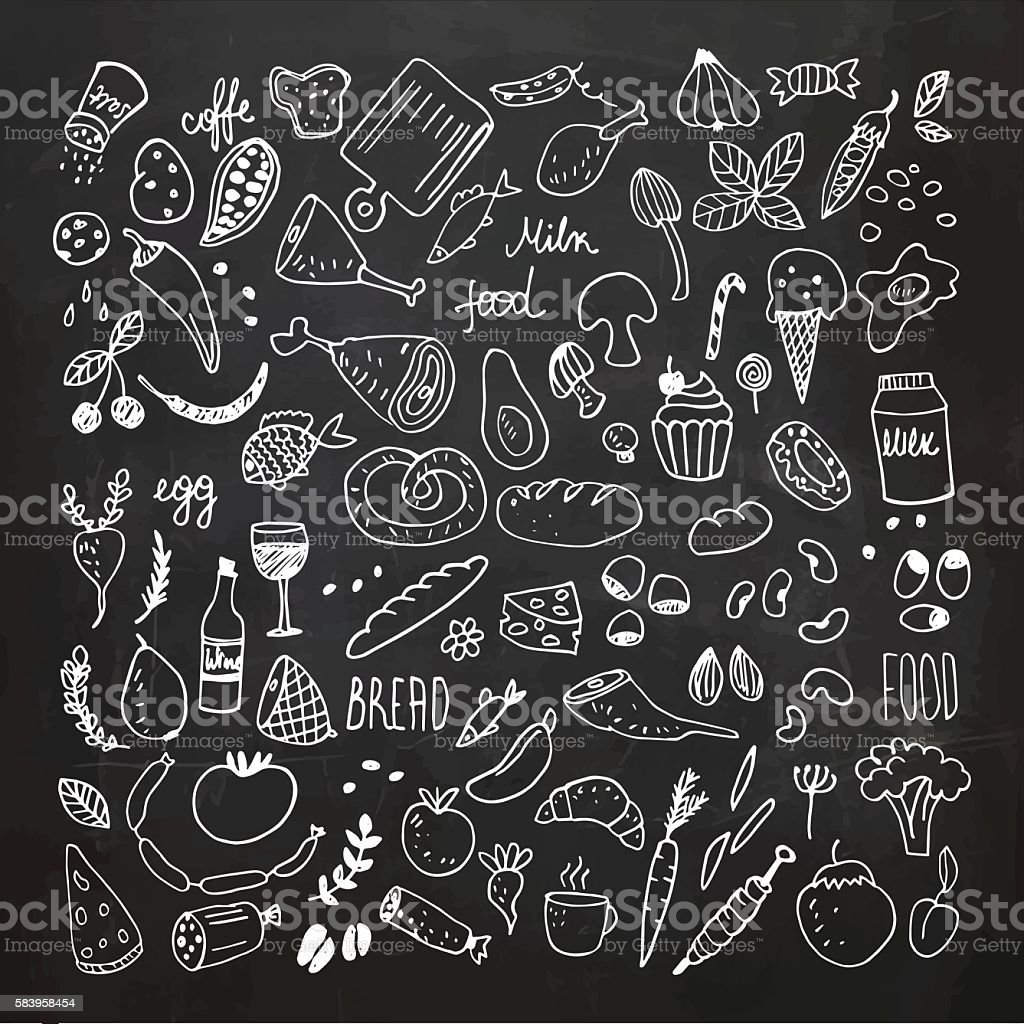 salt
coffe
Milk
food
milk
egg
Wine
BREAD
FOOD
iStock
by Getty Images™
583958454